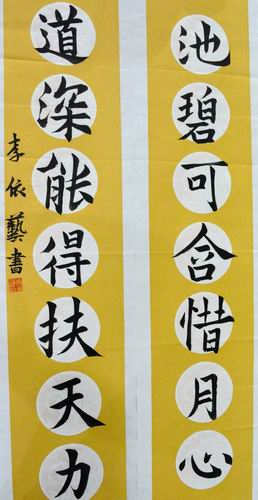 池碧可含惜月心
道深能得扶天力
李依藝書